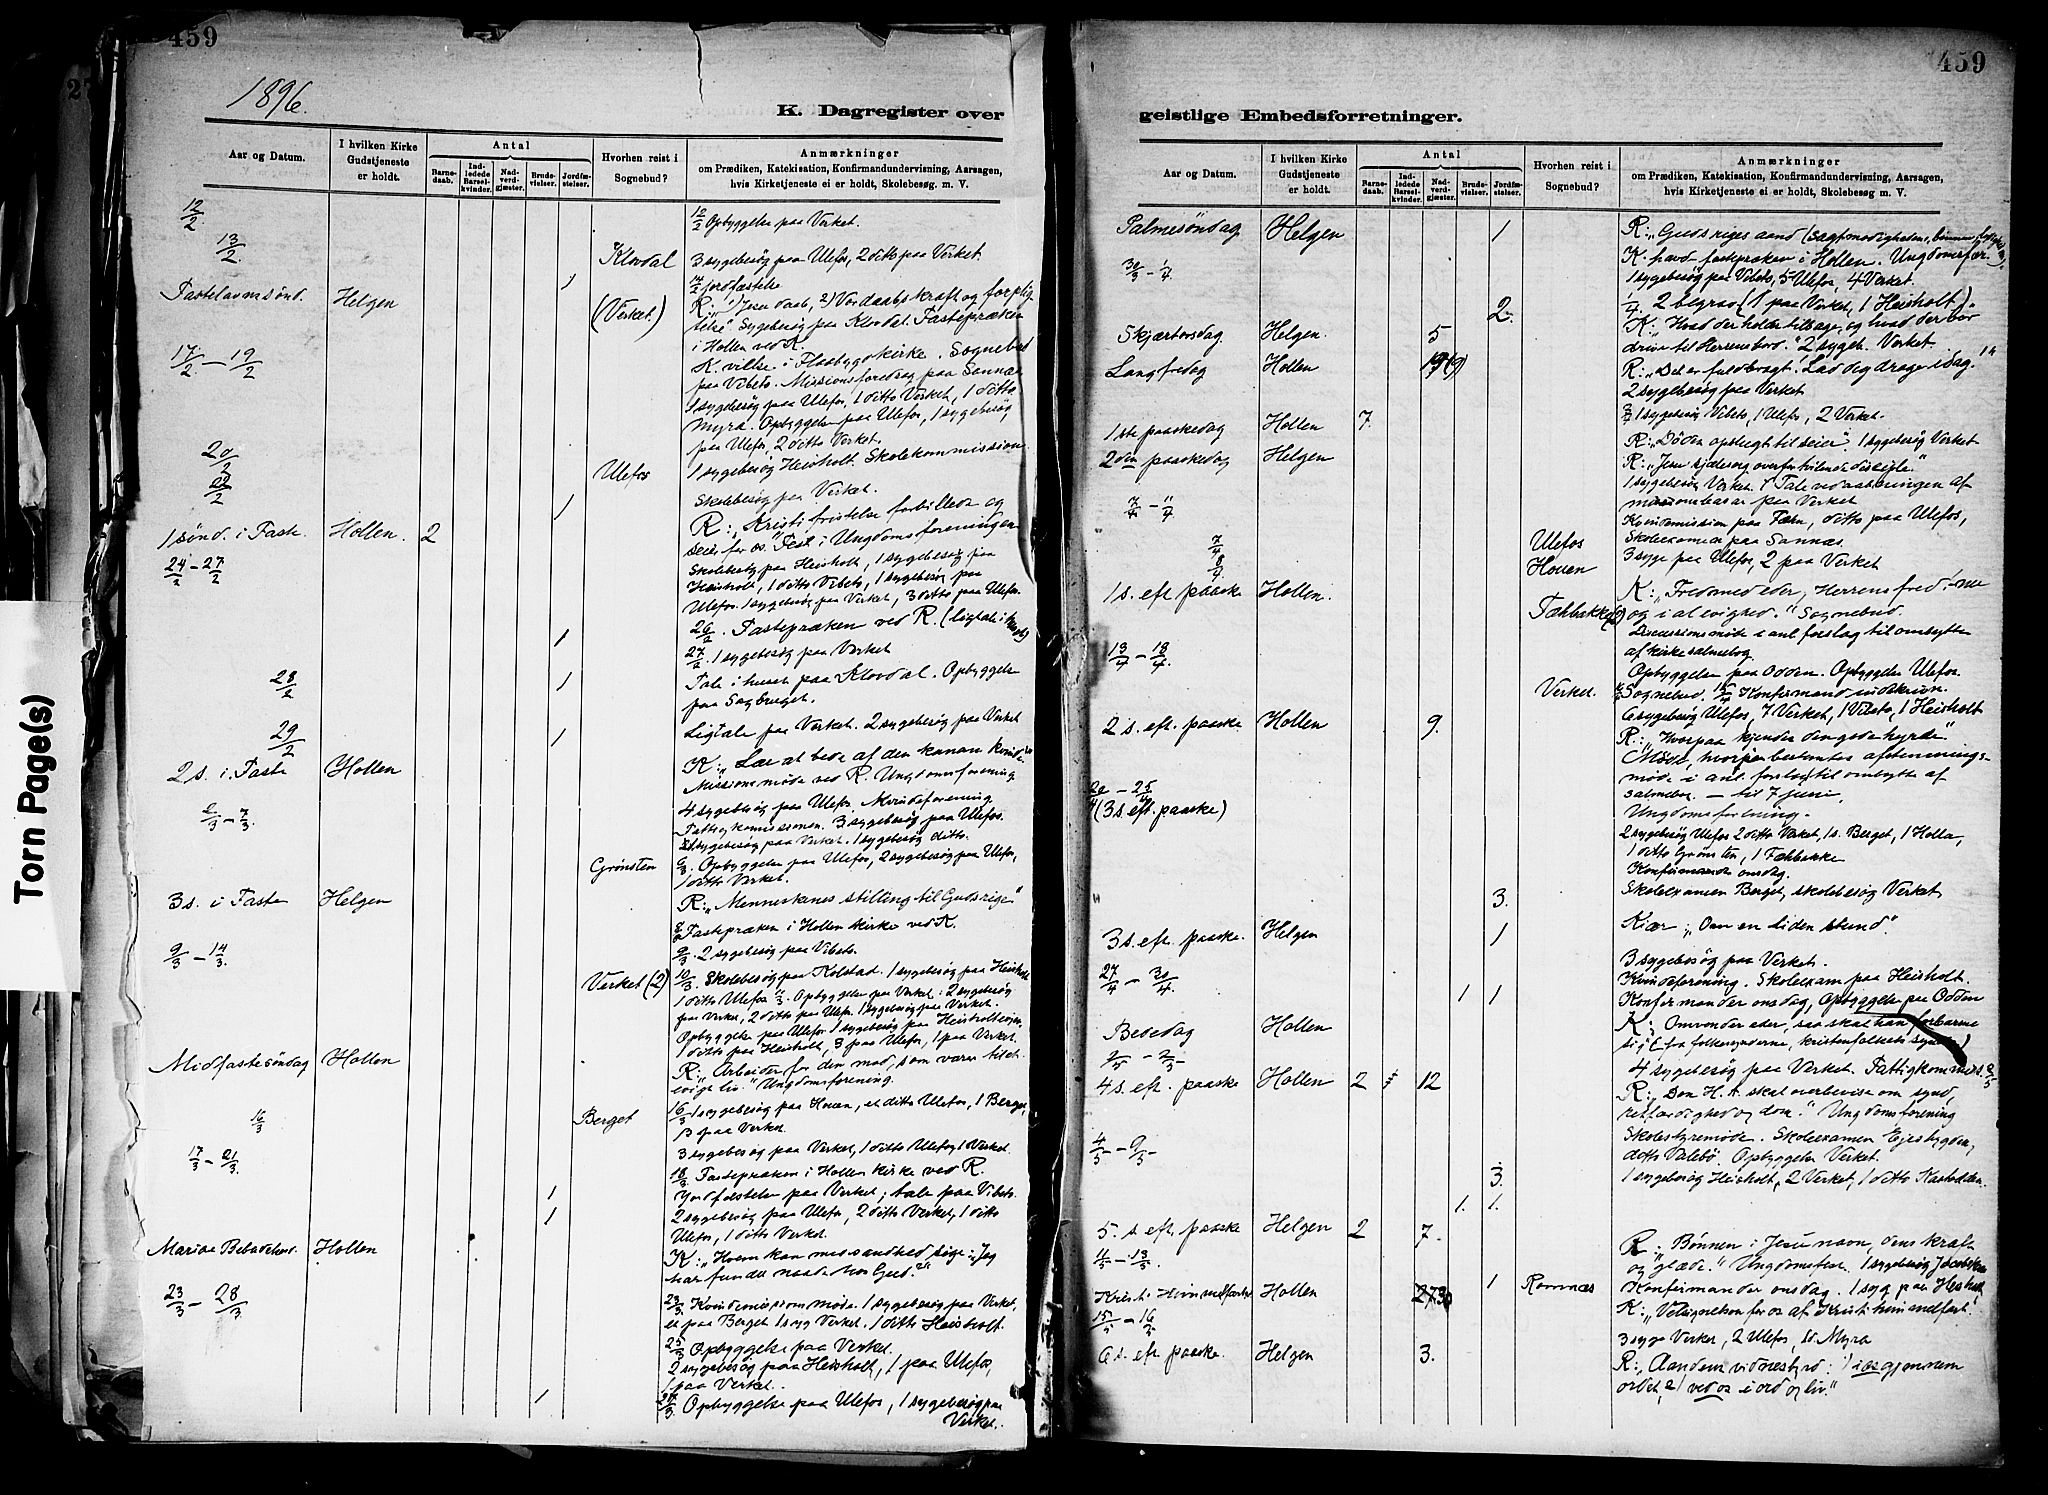 459
1896.
K. Dagregister over
Aar og Datum.
I hvilken Kirke
Gudstjeneste
er holdt.
Antal
Barne-
daab.
Ind-
ledede
Barsel-
kvinder.
Nad-
verd-
gjæster.
Brude-
vielser.
Jordfæ-
stelser.
Hvorhen reist i
Sognebud?
Anmærkninger
om Prædiken, Katekisation, Konfirmandundervisning, Aarsagen,
hvis Kirketjeneste ei er holdt, Skolebesøg. m. V.
12/2 12/2 Opbyggelse paa Verket.
13/2 Klovdal 3 sygebesøg paa Ulefos, 2 ditto paa Verket
1 14/2 Jordfæstelse
Fastelavnssønd. Helgen (Verket.) R: „1) Jesu daab, 2) Vor daabs kraft og forplig-
telse" Sygebesøg paa Klovdal. Fastepræken
i Hollen ved K.
17/2 – 19/2 K. vilse i Flaabygd kirke. Sognebud
paa Vibeto. Missionsforedrag paa Sannæs
1 sygebesøg paa Ulefos, 1 ditto Verket, 1 ditto
Myra. Opbyggelse paa Ulefos, 1 sygebesøg
paa Ulefos, 2 ditto Verket.
20/2 Ulefos 1 sygebesøg Heisholt. Skolekommission
22/2 1 Skolebesøg paa Verket.
1 sønd. i Faste Hollen. 2 R: „Kristi fristelse forbillede og
seier for os." Fest i Ungdomsforeningen
24/2 – 27/2 Skolebesøg paa Heisholt, 1 sygebesøg paa
Heisholt, 1 ditto Vibeto, 1 sygebesøg paa
Ulefos. 1 sygebesøg paa Verket, 3 ditto paa Ulefos.
26/2. Fastepræken ved R.
1 27/2. 1 sygebesøg paa Verket
28/2 1 Tale i huset paa Klovdal. Opbyggelse
paa Sagbruget.
29/2 1 Ligtale paa Verket. 2 sygebesøg paa Verket
2 s. i Faste Hollen K: „Lær at bede af den kanan. kvinde
Missionsmøde ved R. Ungdomsforening.
2/3 – 7/3. 4 sygebesøg paa Ulefos. Kvindeforening.
Fattigkommissionen. 3 sygebesøg paa Ulefos.
sygebesøg paa Verket. 1 sygebesøg ditto.
Grønsten 6/3. Opbyggelse paa Ulefos, 2 sygebesøg paa Ulefos,
1 ditto Verket.
3 s. i Faste Helgen R: „Menneskenes stilling til Guds rige"
Fastepræken i Hollen kirke ved K.
9/3 – 14/3. 9/3. 2 sygebesøg paa Vibeto.
Verket (2) 10/3. Skolebesøg paa Kolstad. 1 sygebesøg paa Heisholt
1 ditto Ulefos 11/3. Opbyggelse paa Verket. 2 sygebesøg
paa Verket, 2 ditto paa Ulefos. 1 sygebesøg paa Verket.
Opbyggelse paa Ulefos 1 sygebesøg paa
1 ditto paa Heisholt, 3 paa Ulefos, 1 paa Verket.
Midfastesøndag Hollen R: „Arbeider for den mad, som varer til det
evige liv." Ungdomsforening.
16/3 Berget 16/3 1 sygebesøg paa Houen, et ditto Ulefos, 1 Berget,
13 paa Verket.
17/3 – 21/3. 3 sygebesøg paa Verket, 1 ditto Ulefos, 1 Verket.
18/3 Fastepræken i Hollen kirke ved R.
1 Jordfæstelse paa Verket; tale paa Vibeto.
1 2 sygebesøg paa Ulefos, 2 ditto Verket, 1 ditto
Ulefos, 1 ditto Verket.
Mariæ Bebudelsesd. Hollen K: „Hvem kan med sandhed sige: Jeg
har fundet naade hos Gud?"
23/3 – 28/3 23/3. Kvindemissionsmøde. 1 sygebesøg paa Verket,
et paa Berget 1 syg Verket. 1 ditto Heisholt.
25/3 Opbyggelse paa Verket.
2 sygebesøg paa Heisholt, 1 paa Ulefos,
1 paa Verket.
1 Opbyggelse paa Ulefos, 1 sygebesøg paa
Verket.
459
geistlige Embedsforretninger.
Aar og Datum.
I hvilken Kirke
Gudstjeneste
er holdt.
Antal
Barne-
daab.
Ind-
ledede
Barsel-
kvinder.
Nad-
verd-
gjæster.
Brude-
vielser.
Jordfæ-
stelser.
Hvorhen reist i
Sognebud?
Anmærkninger
om Prædiken, Katekisation, Konfirmandundervisning, Aarsagen,
hvis Kirketjeneste ei er holdt, Skolebesøg m. V.
Palmesöndag Helgen 1 R: „Gudsriges aand (sagtmodigheden,
K. havde fastepræken i Hollen. Ungdomsfor.
30/3 – 1/4. 1 sygebesøg paa Vibeto, 5 Ulefos, 4 Verket.
2. 1/4 2 begrav (1 paa Verket, 1 Heisholt).
Skjærtorsdag Helgen. 5 K: „Hvad der holder tilbage, og hvad der bør
drive til Herrens bord." 2 sygeb. Verket
Langfredag Hollen R: „Det er fuldbragt. Lad dig drage idag."
2 sygebesøg paa Verket
1 sygebesøg Vibeto, 1 Ulefos, 2 Verket.
1ste paaskedag Hollen 7. R: „Døden opslugt til seier". 1 sygebesøg Verket
2den paaskedag Helgen R: „Jesu sjælesorg overfor tvilende disciple."
1 sygebesøg Verket. Tale ved aabningen af
7/4 – 11/4 missionsbasar paa Verket
Kvindemission paa Fæhn, ditto paa Ulefos,
7/4 Ulefos Skoleexamen paa Sannæs.
8/4. Houen 3 syge paa Ulefos, 2 paa Verket
1 s. eft. paaske Hollen. K: „Fred med eder, Herrens fred! – nu
Fæhbakke og i al evighed." Sognebud.
Discussionsmøde i anl. forslag til ombytte
13/4 – 18/4. af kirkesalmebog
Opbyggelse paa Odden. Opbyggelse Ulefos.
Verket. Sognebud. 15/4 Konfirmandindskrivn.
6 sygebesøg Ulefos, 7 Verket, 1 Vibeto, 1 Heisholt
2 s. eft. paaske Hollen 9. R: „Hvorpaa kjendes den gode hyrde"
Møde, hvorpaa bestemtes afstemnings-
møde i anl. forslag til ombytte af
20 – 25/4 salmebog. – til 7 juni,
(3 s. eft. paaske) Ungdomsforening.
2 sygebesøg Ulefos 2 ditto Verket, 1 s. Berget, 1 Holla,
1 ditto Grønsten, 1 Fæhbakke
Konfirmander onsdag.
3. Skoleexamen Berget, skolebesøg Verket
3 s. eft. paaske. Helgen 1 Kiær: „Om en liden stund".
3 sygebesøg paa Verket.
27/4 – 30/4. Kvindeforening. Skoleexam paa Heisholt.
1 1 Konfirmander onsdag, Opbyggelse paa Odden
Bededag Hollen K: Omvender eder, saa skal han forbarme
sig (fra folkesynderne, kristenfolkets synder)
1/5 – 2/5 4 sygebesøg paa Verket. Fattigkommis. 2/5
4 s. eft. paaske Hollen 2 12 R: „Den H. A. skal overbevise om synd,
retfærdighed og dom." Ungdomsforening
4/5 – 9/5 Skolestyremøde. Skoleexamen Ejesbygden,
ditto Valebø Opbyggelse Verket.
3. 1 sygebesøg Heisholt, 2 Verket, 1 ditto Kastodden.
1. 1.
5. s. eft. paaske Helgen 2 7. R: „Bønnen i Jesu navn, dens kraft
11/5 – 13/5. og glæde." Ungdomsfor. 1 sygebesøg
1 Romnæs Konfirmander onsdag. 1 syg paa Heisholt
Kristi Himmelfartsd Hollen R: „Velsignelsen for os af Kristi himmelfart."
15/5 – 16/5 3 syge Verket, 2 Ulefos, Myra
6 s. eft. paaske. Helgen 3. R: „Aandens vidnesbyrd: 1) i os gjennem
ordet, 2) ved os i ord og liv."
Torn Page(s)